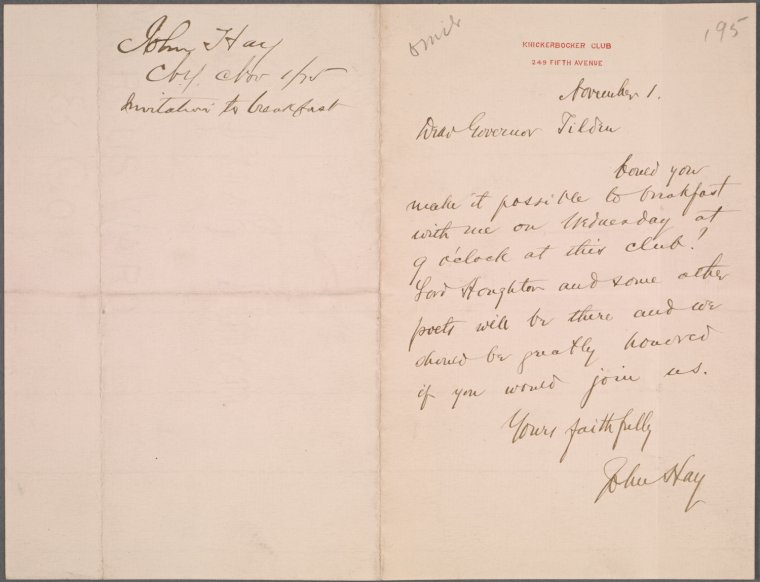 John Hay
Nov 1/75
Invitation to breakfast
omit
195
KNICKERBOCKER CLUB
249 FIFTH AVENUE
November 1.
Dear Governor Tilden
Could you
make it possible to breakfast
with me on Wednesday at
9 o'clock at this club?
Lord Houghton and some other
poets will be there and we
should be greatly honored
if you would join us.
Yours faithfully
John Hay